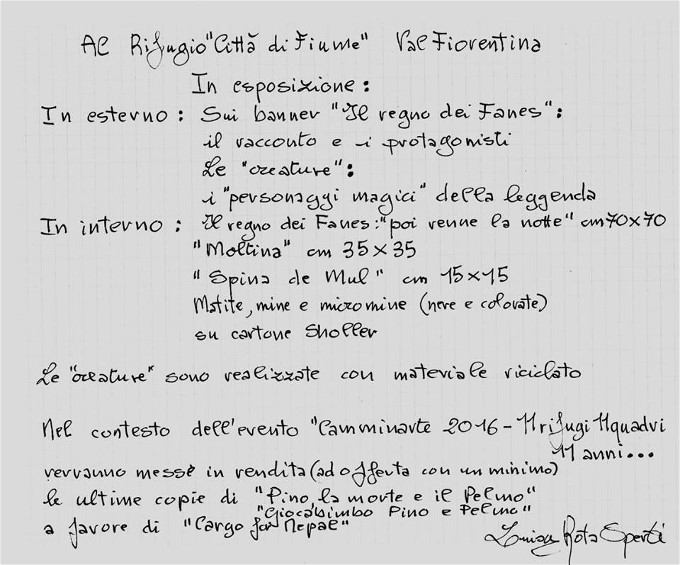 Al Rifugio "Città di Fiume" Val Fiorentina
In esposizione :
In esterno : Sui banner "Il regno dei Fanes" :
il racconto e i protagonisti
Le "creature" :
i "personaggi magici" della leggenda
In interno : Il regno dei Fanes : "poi venne la notte" cm 70x70
"Moltina" cm 35x35
"Spina de Mul" cm 15x15
Matite, mine e micromine (nere e colorate)
su cartone Sholler
Le "creature" sono realizzate con materiale riciclato
Nel contesto dell'evento "Camminarte 2016 - 11 rifugi 11 quadri
11 anni...
verranno messe in vendita (ad offerta con un minimo)
le ultime copie di "Pino, la morte e il Pelmo"
"Giocabimbo Pino e Pelmo"
a favore di "Cargo for Nepal"
Luisa Rota Sperti